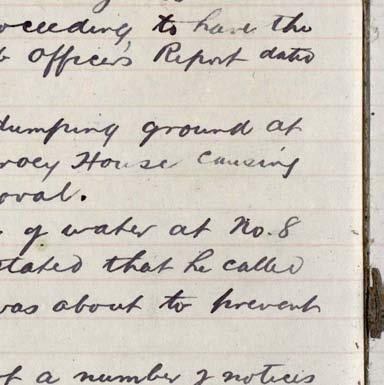 oceeding to have the
Officer's Report dated
dumping ground at
House causing
oval.
of water at No. 8
stated that he called
was about to prevent
of a number of notices